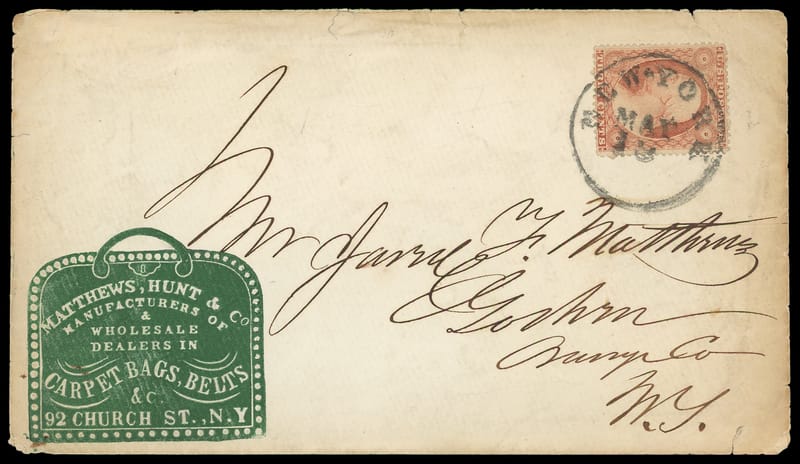 NEW-YORK
MAR
MATTHEWS, HUNT & Co
MANUFACTURERS OF
&
WHOLESALE
DEALERS IN
CARPET BAGS, BELTS
&C.
92 CHURCH ST., N.Y
Mr F. Matthews
Goshen
Orange Co
N.Y.